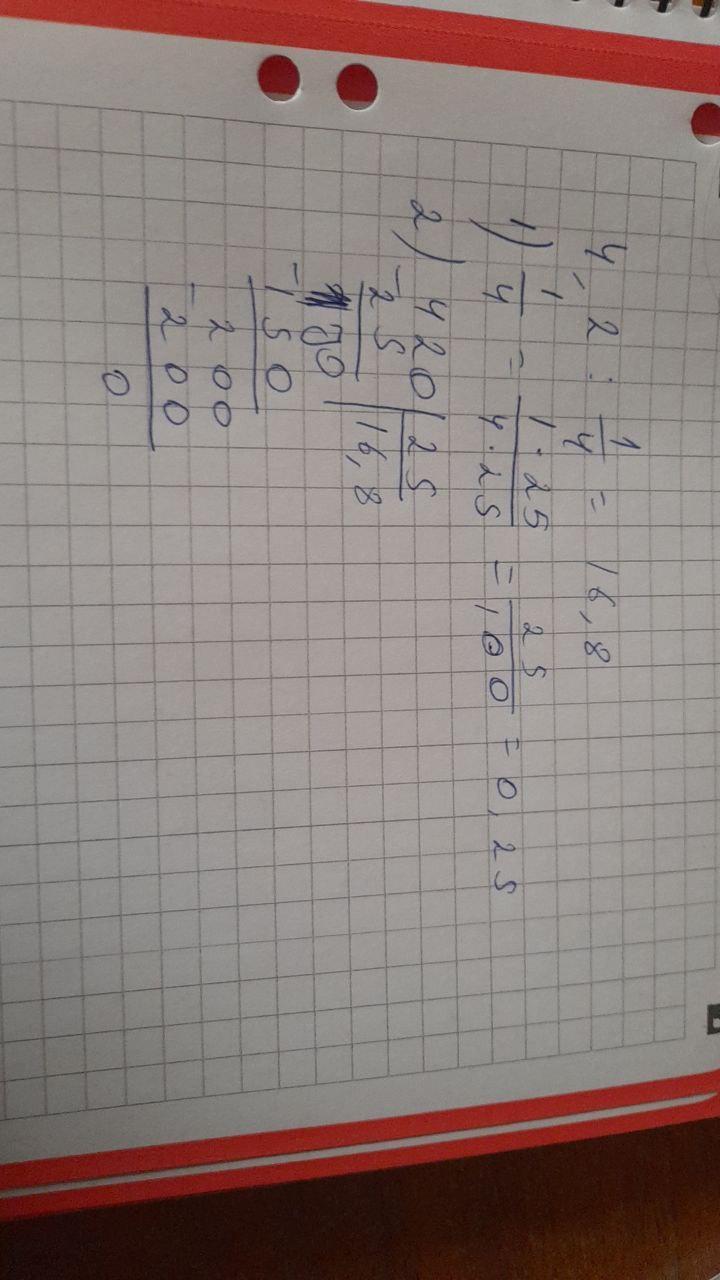 4,2 : 1/4 = 16,8
1) 1/4 = 1·25/4·25 = 25/100 = 0,25
2) 420 | 25
- 25 | 16,8
170
- 150
200
- 200
0